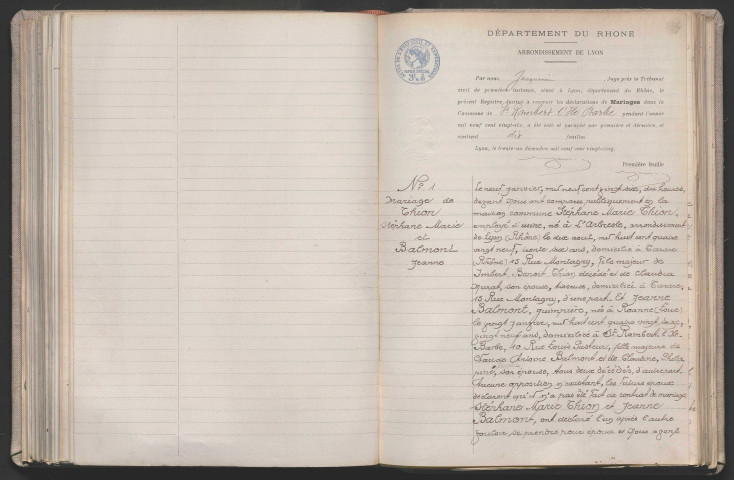 DÉPARTEMENT DU RHONE
ARRONDISSEMENT DE LYON
Par nous, Juge près le Tribunal
civil de première instance, séant à Lyon, département du Rhône, le
présent Registre, destiné à recevoir les déclarations de Mariages dans la
Commune de St Rambert l'Ile Barbe pendant l'année
mil neuf cent vingt-six, a été coté et paraphé par première et dernière, et
contient dix feuilles
Lyon, le trente-un décembre mil neuf cent vingt-cinq.
Première feuille
No 1
Mariage de
Thion
Stéphane Marie
et
Balmont
Jeanne
Le neuf janvier, mil neuf cent vingt six, dix heures,
devant nous ont comparu publiquement en la
maison commune Stéphane Marie Thion,
employé d'usine, né à L'Arbresle, arrondissement
de Lyon (Rhône) le dix août, mil huit cent quatre
vingt neuf, trente six ans, domicilié à Tarare
(Rhône) 15 Rue Montagny, fils majeur de
Imbert Benoît Thion décédé et de Claudia
son épouse, domiciliée à Tarare,
15 Rue Montagny, d'une part. Et Jeanne
Balmont, guimpière, née à Roanne (Loire)
le vingt janvier, mil huit cent quatre vingt seize,
vingt neuf ans, domiciliée à St Rambert l'Ile-
Barbe, 40 Rue Louis Pasteur, fille majeure de
Claude Antoine Balmont et de Claudine
son épouse, tous deux décédés, d'autre part.
Aucune opposition n'existant, les futurs époux
déclarent qu'il n'a pas été fait de contrat de mariage
Stéphane Marie Thion et Jeanne
Balmont, ont déclaré l'un après l'autre
vouloir se prendre pour époux et nous avons